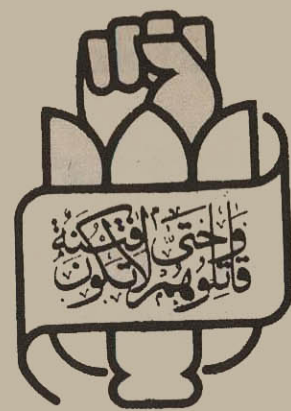 وقاتلوهم حتى لا تكون فتنة